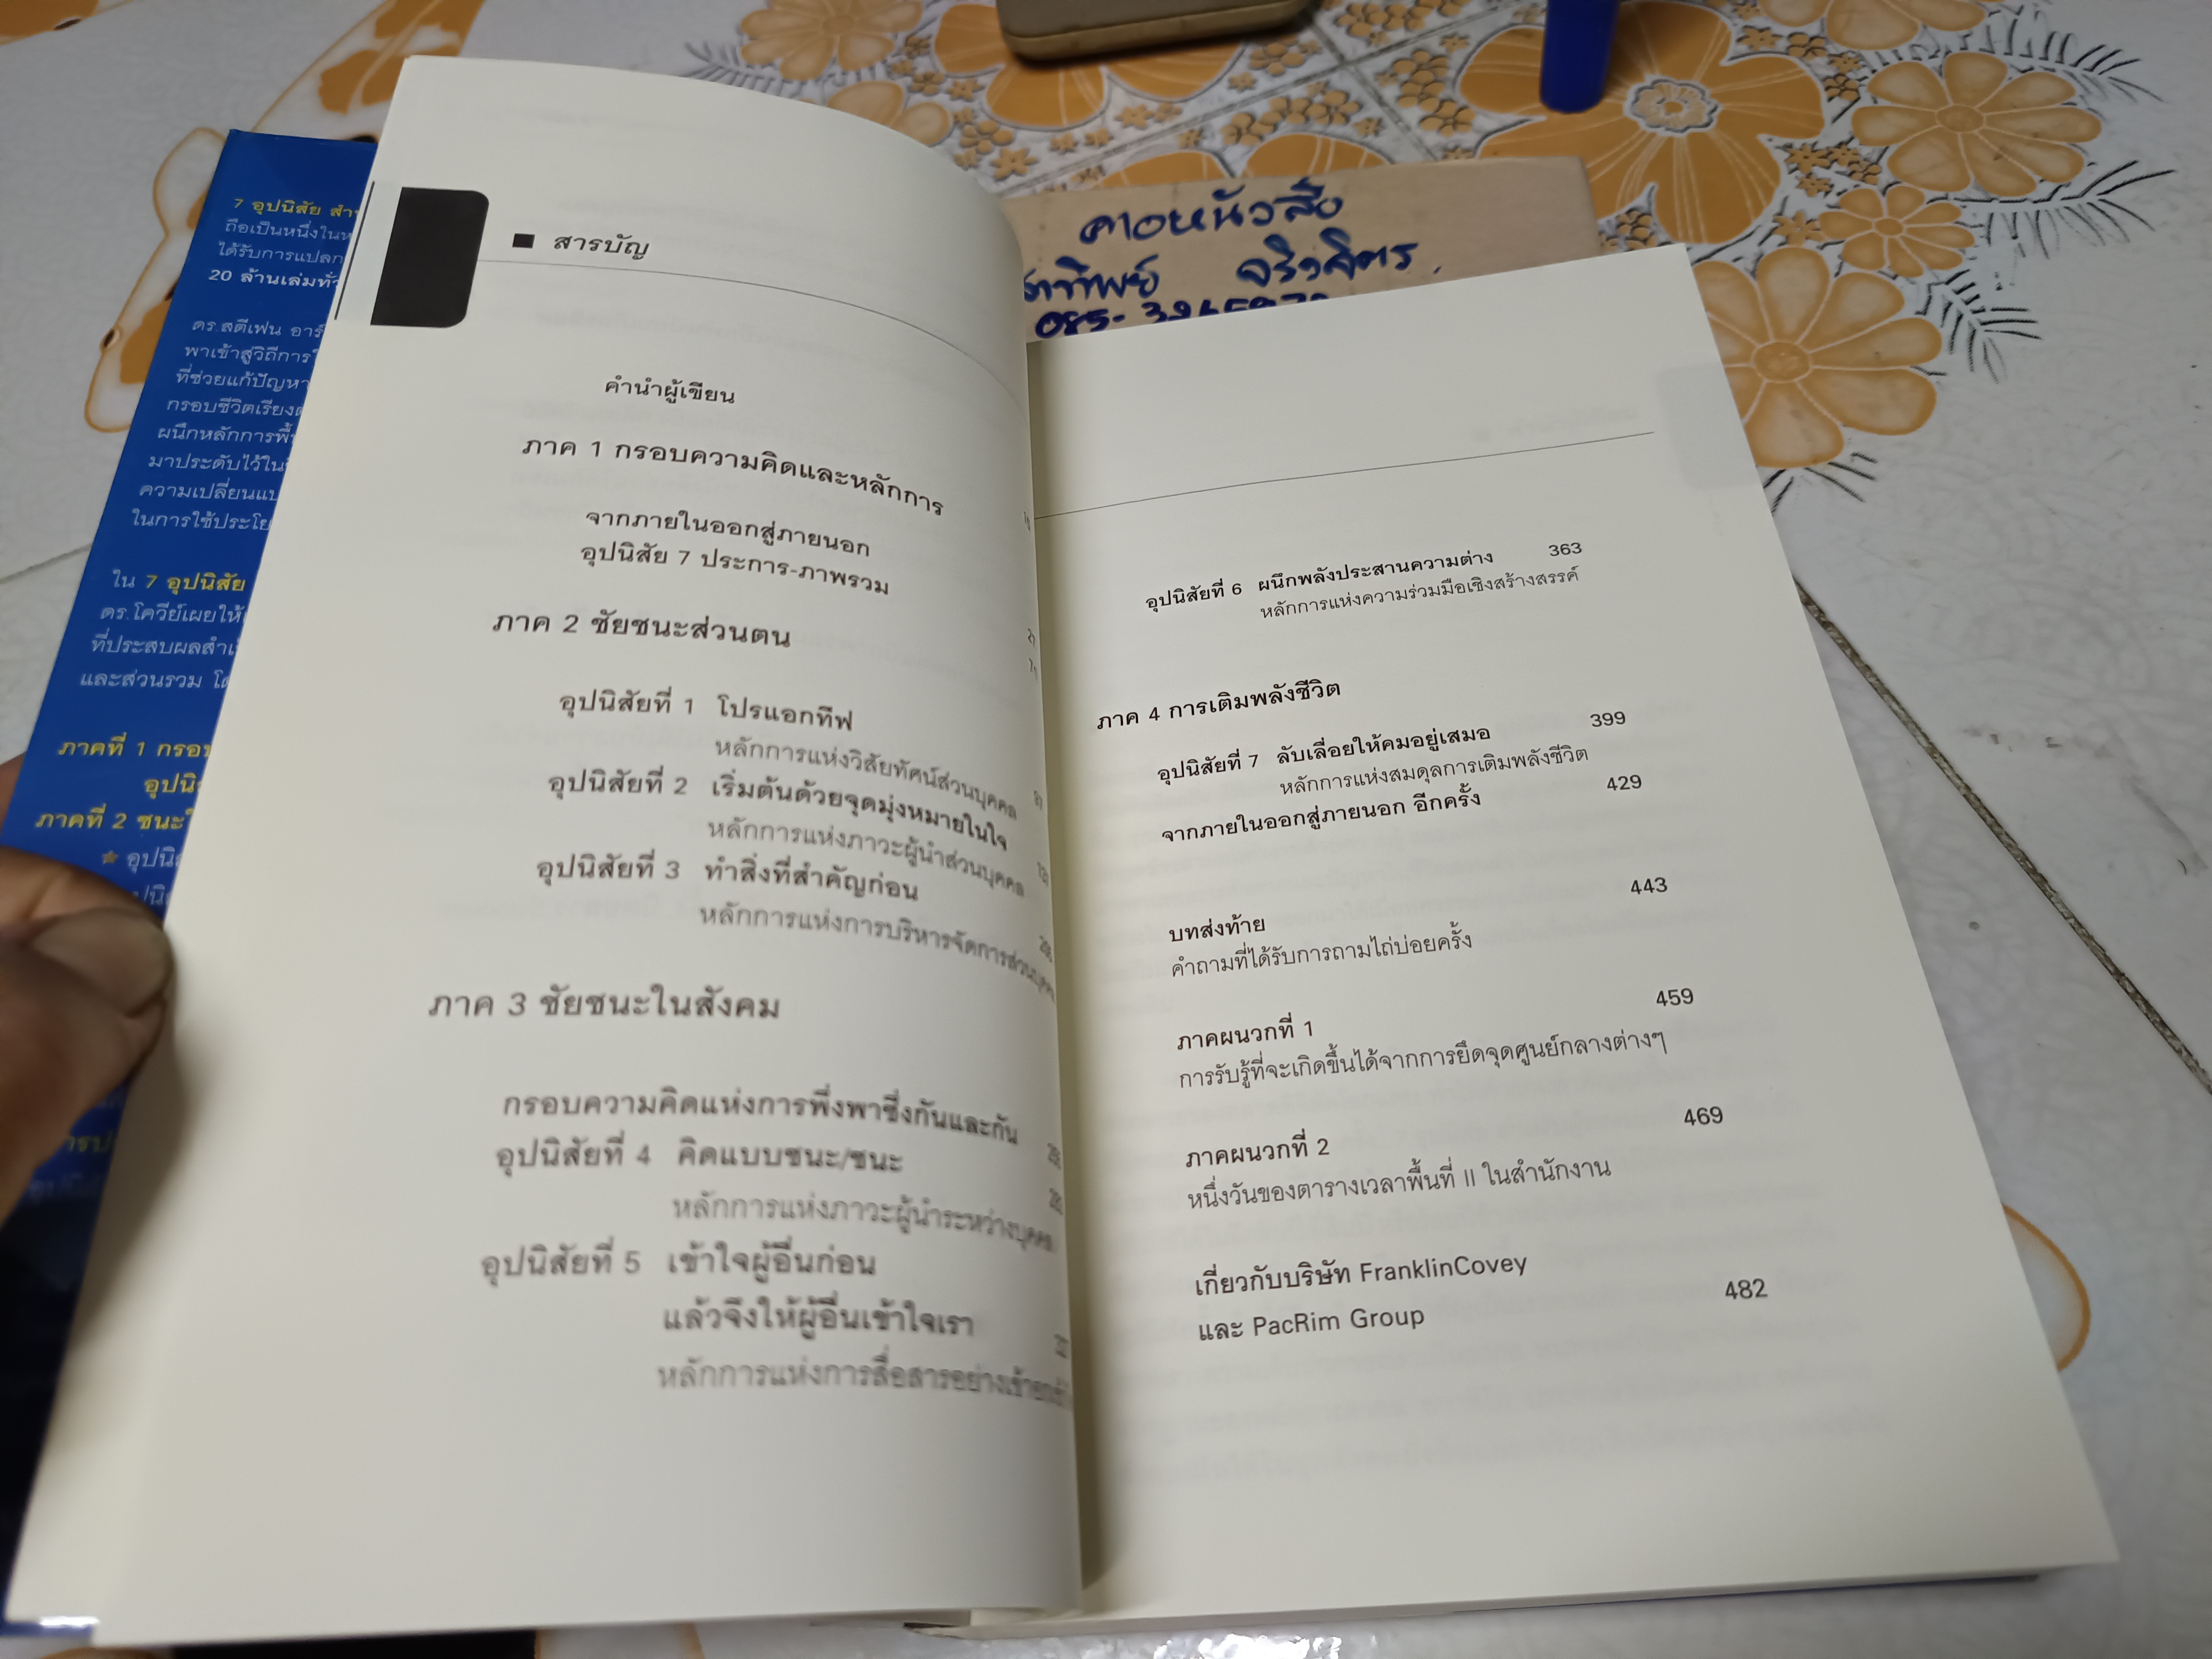 7 อุปนิสัย
ถือเป็นหนึ่งใน
ได้รับการแปล
20 ล้านเล่ม
ดร.สตีเฟน อาร์
พาเข้าสู่วิถีการ
ที่ช่วยแก้ปัญหา
กรอบชีวิตเรียง
ผนึกหลักการ
มาประดับไว้ใน
ความเปลี่ยน
ในการใช้
ใน 7 อุปนิสัย
ดร.โควีย์เผยให้
ที่ประสบผล
และส่วนรวม
ภาคที่ 1
ภาคที่ 2
■ สารบัญ
คำนำผู้เขียน
ภาค 1 กรอบความคิดและหลักการ
จากภายในออกสู่ภายนอก
อุปนิสัย 7 ประการ-ภาพรวม
ภาค 2 ชัยชนะส่วนตน
อุปนิสัยที่ 1 โปรแอกทีฟ
หลักการแห่งวิสัยทัศน์ส่วนบุคคล
อุปนิสัยที่ 2 เริ่มต้นด้วยจุดมุ่งหมายในใจ
หลักการแห่งภาวะผู้นำส่วนบุคคล
อุปนิสัยที่ 3 ทำสิ่งที่สำคัญก่อน
หลักการแห่งการบริหารจัดการส่วนบุคคล
ภาค 3 ชัยชนะในสังคม
กรอบความคิดแห่งการพึ่งพาซึ่งกันและกัน
อุปนิสัยที่ 4 คิดแบบชนะ/ชนะ
หลักการแห่งภาวะผู้นำระหว่างบุคคล
อุปนิสัยที่ 5 เข้าใจผู้อื่นก่อน
แล้วจึงให้ผู้อื่นเข้าใจเรา
หลักการแห่งการสื่อสารอย่าง
085-
อุปนิสัยที่ 6 ผนึกพลังประสานความต่าง 363
หลักการแห่งความร่วมมือเชิงสร้างสรรค์
ภาค 4 การเติมพลังชีวิต
อุปนิสัยที่ 7 ลับเลื่อยให้คมอยู่เสมอ 399
หลักการแห่งสมดุลการเติมพลังชีวิต
จากภายในออกสู่ภายนอก อีกครั้ง 429
บทส่งท้าย 443
คำถามที่ได้รับการถามไถ่บ่อยครั้ง
ภาคผนวกที่ 1 459
การรับรู้ที่จะเกิดขึ้นได้จากการยึดจุดศูนย์กลางต่างๆ
ภาคผนวกที่ 2 469
หนึ่งวันของตารางเวลาพื้นที่ II ในสำนักงาน
เกี่ยวกับบริษัท FranklinCovey
และ PacRim Group 482